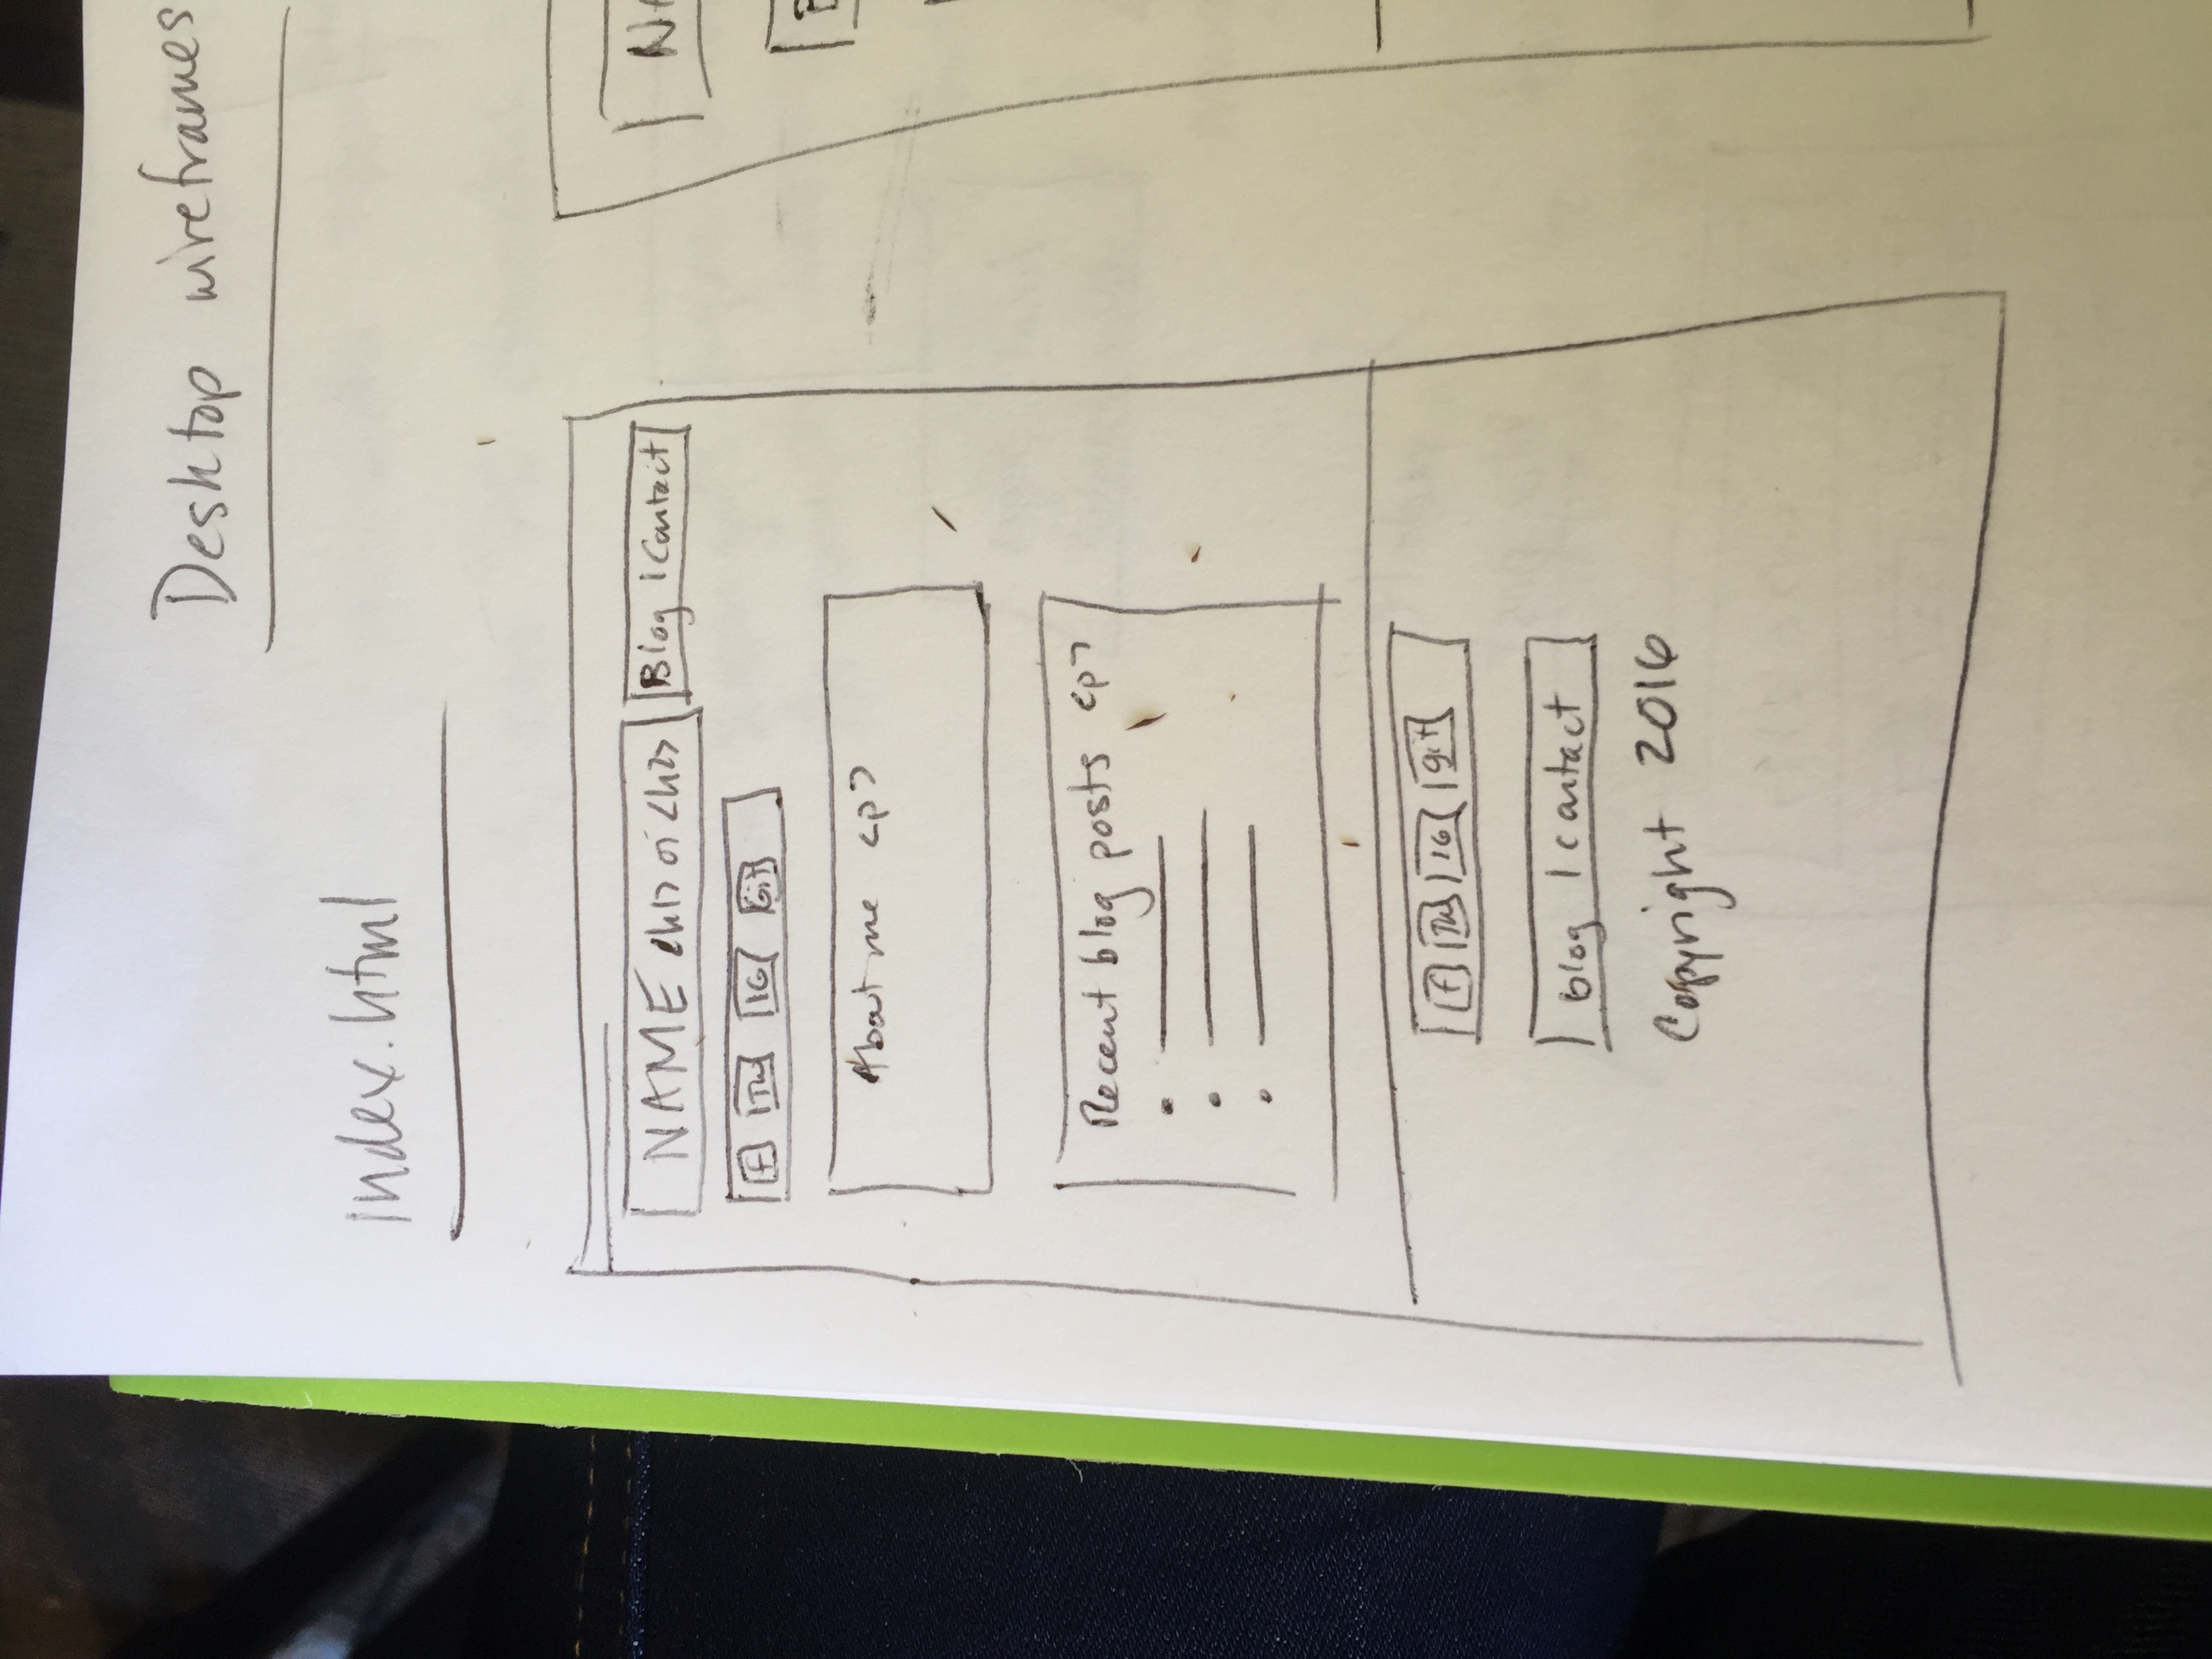 Desktop wireframes
index.html
NAME <h1> or <h2>
Blog | Contact
f Tw IG Git
About me <p>
Recent blog posts <p>
f Tw IG git
blog | contact
Copyright 2016